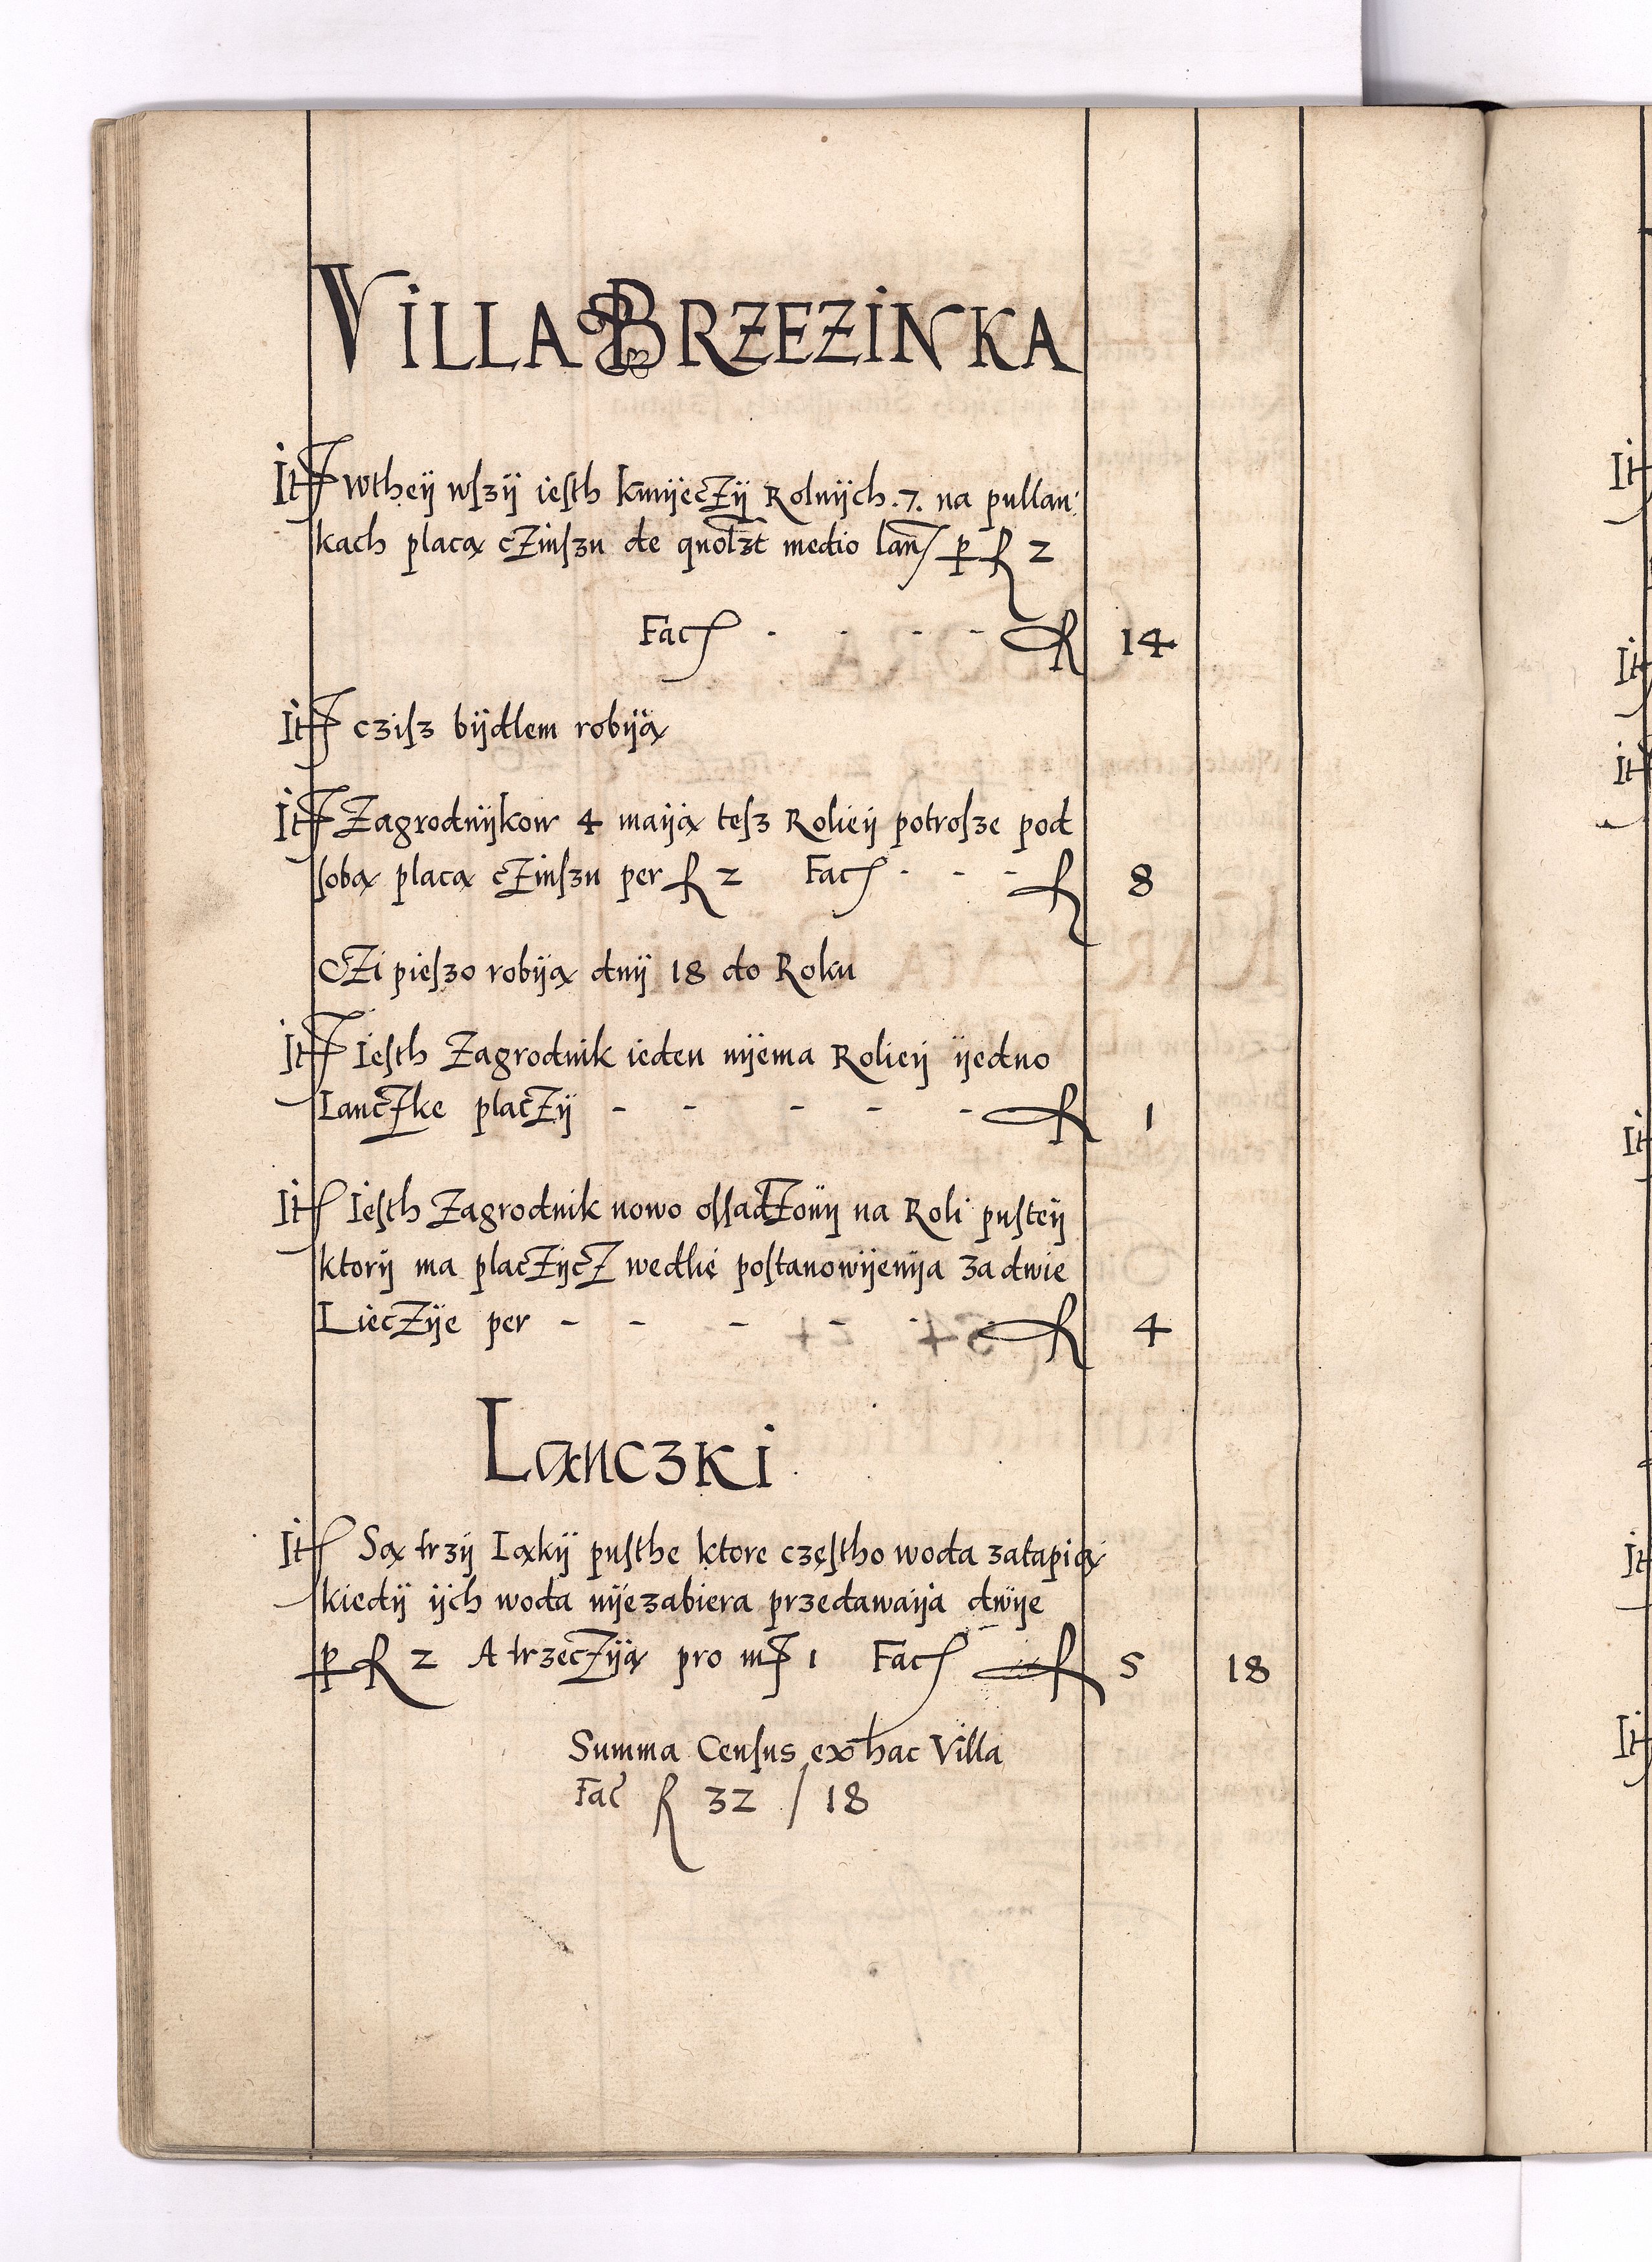 VILLA BRZEZINKA
It wtheÿ wszÿ iesth kmÿeczÿ Rolnÿch .7. na pullan:
kach placą czinszu de quolzt medio lan p ƒ 2
Fac - - - - ƒ 14
It czisz bÿdlem robÿą
It Zagrodnÿkow 4 maÿą tesz Rolieÿ potrosze pod
sobą placą czinszu per ƒ 2 Fac - - - ƒ 8
Czi pieszo robÿą dnÿ 18 do Roku
It Iesth Zagrodnik ieden nÿema Rolieÿ ÿedno
Lanczke placzÿ - - - - - ƒ 1
It Iesth Zagrodnik nowo ossadzonÿ na Roli pusteÿ
ktorÿ ma placzÿcz wedlie postanowÿenÿa za dwie
Lieczÿe per - - - - - ƒ 4
Lanczki
It Są trzÿ Ląkÿ pusthe ktore częstho woda zatapią
kiedÿ ÿch woda nÿezabiera przedawaÿą dwÿe
p ƒ 2 A trzeczÿą pro m 1 Fac ƒ 5 18
Summa Census ex hac Villa
Fac ƒ 32 / 18